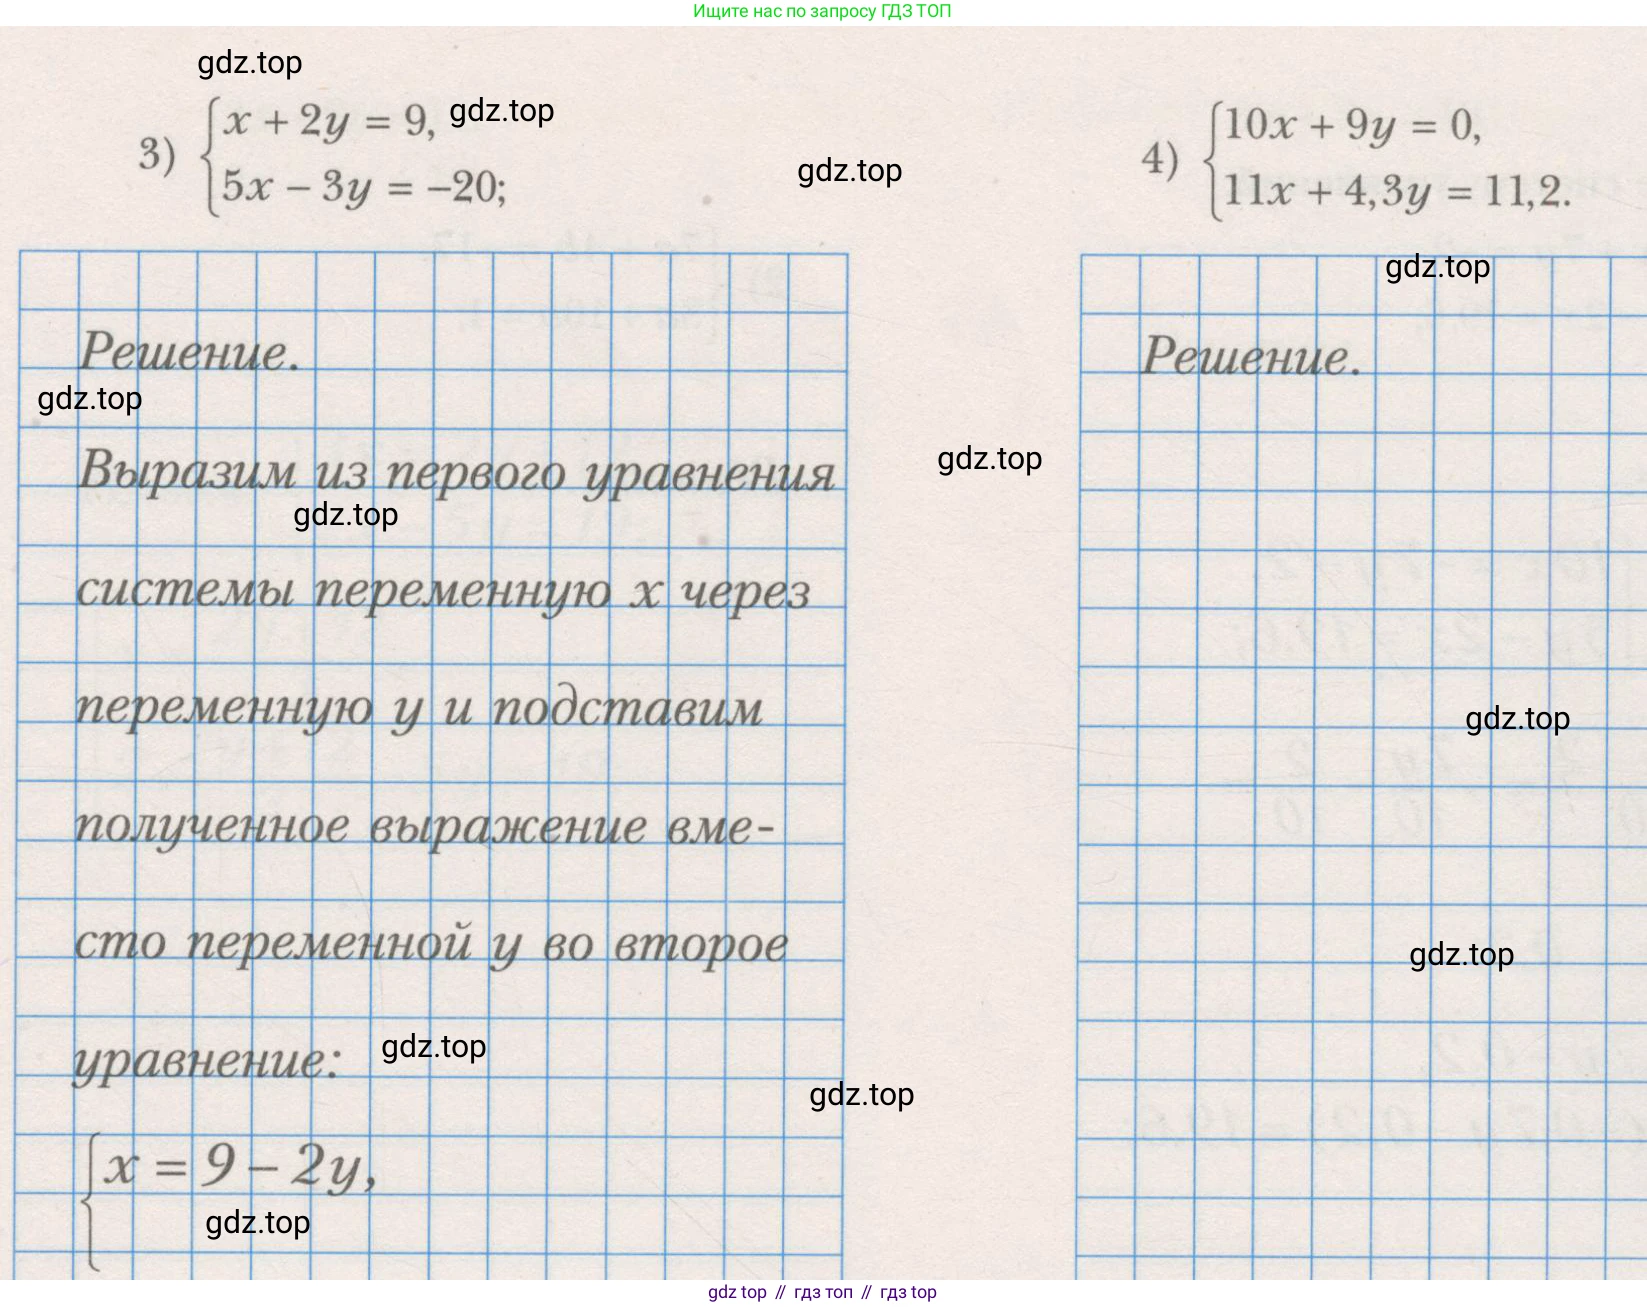 Ищите нас по запросу ГДЗ ТОП
gdz.top
3) x + 2y = 9,
gdz.top
5x – 3y = –20;
gdz.top
4) 10x + 9y = 0,
11x + 4,3y = 11,2.
gdz.top
Решение.
gdz.top
Выразим из первого уравнения
gdz.top
системы переменную x через
переменную y и подставим
полученное выражение вме-
сто переменной y во второе
уравнение:
gdz.top
x = 9 – 2y,
gdz.top
gdz.top
gdz.top
Решение.
gdz.top
gdz.top
gdz top // гдз топ // гдз top